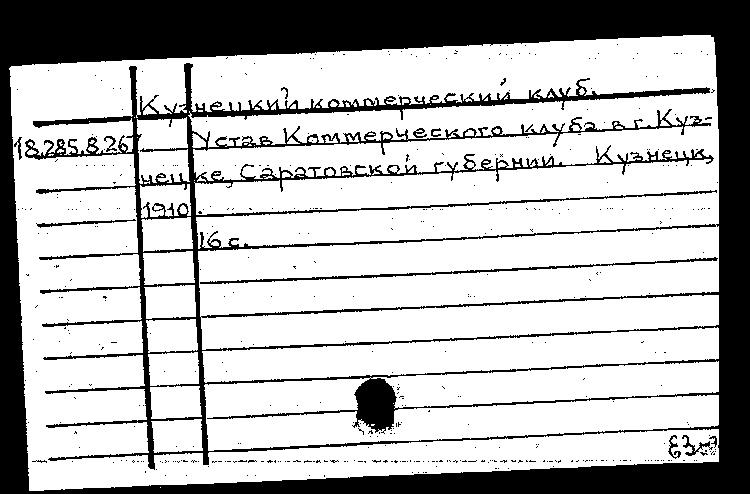 Кузнецкий коммерческий клуб.
18.285.8.267 Устав Коммерческого клуба в г. Куз-
нецке, Саратовской губернии. Кузнецк,
1910.
16 с.